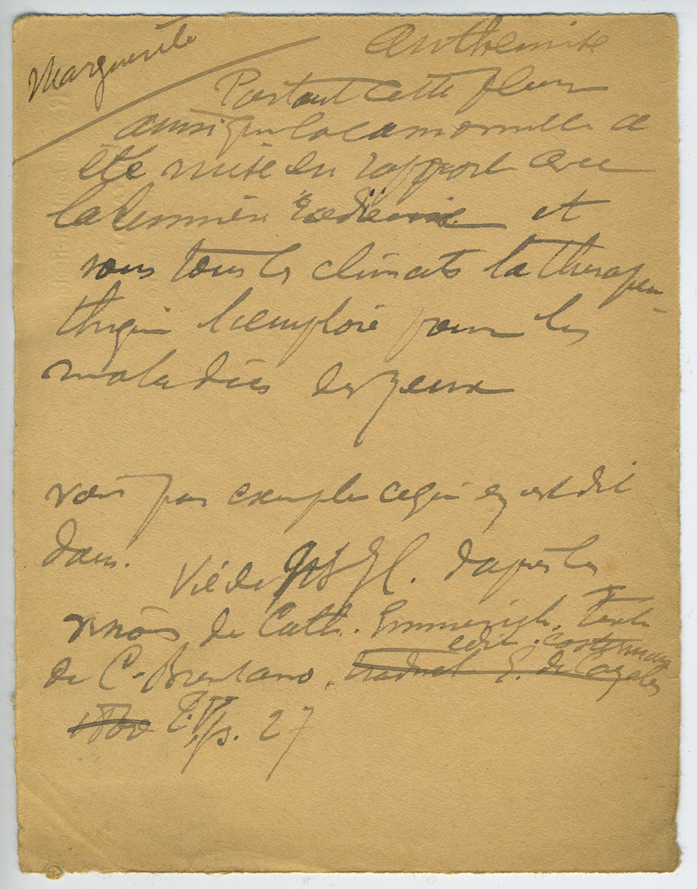 Marguerite
Anthemise
Partout cette fleur
ainsi que la camomille a
été mise en rapport avec
la lumière et
sous tous les climats la thérapeu-
thique l'emploie pour les
maladies des yeux
voir par exemple ce qui en est dit
dans.
Vie de d'après les
visions de Cath. Emmerich, texte
edit. Casterman
de C. Brentano, traduct E. de Cazalès
1860 T. V, p. 27